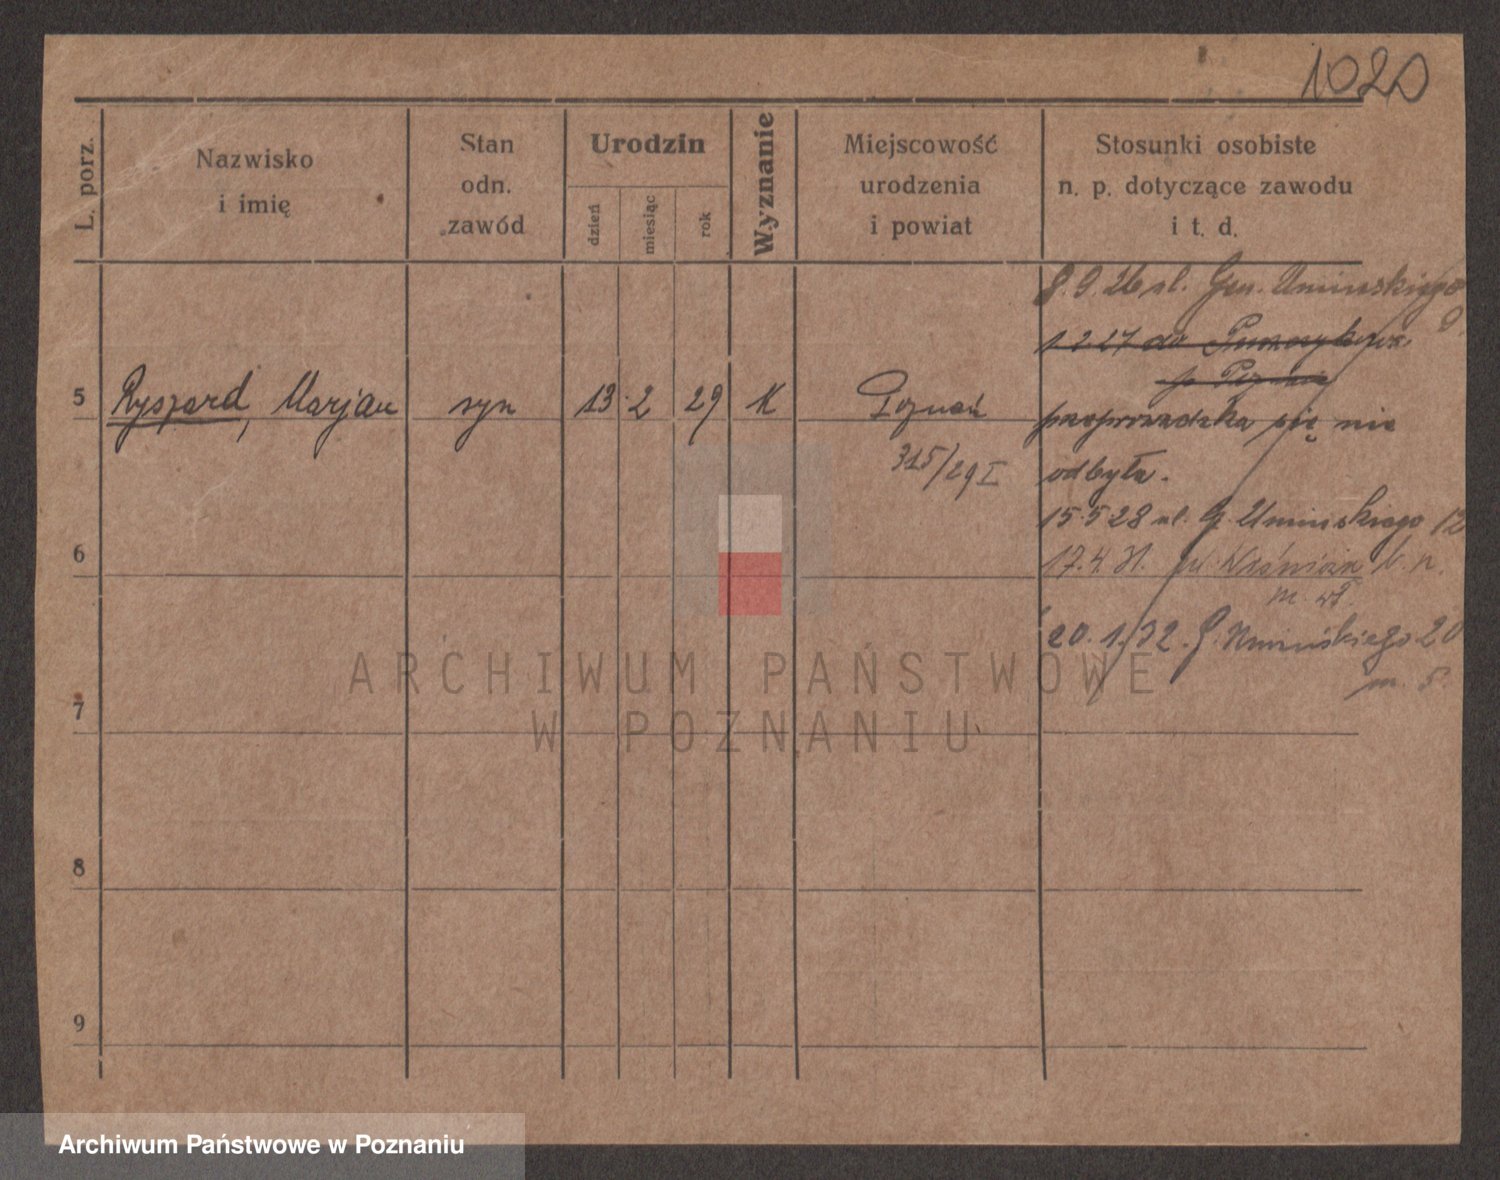 1020
L. porz.
Nazwisko
i imię
Stan
odn.
zawód
Urodzin
dzień
miesiąc
rok
Wyznanie
Miejscowość
urodzenia
i powiat
Stosunki osobiste
n. p. dotyczące zawodu
i t. d.
8.9.26 ul. Gen. Umińskiego
9
1.2.27 do
p. Poznań
5 Ryszard, Marjan syn 13 2 29 K Poznań
315/29 I
przeprowadzka się nie
odbyła.
15.5.28 ul. G. Umińskiego 12
6
17.4.31. n.
m. wł.
20.1.32. G. Umińskiego 20
m. 5.
7
8
9
ARCHIWUM PAŃSTWOWE
W POZNANIU
Archiwum Państwowe w Poznaniu